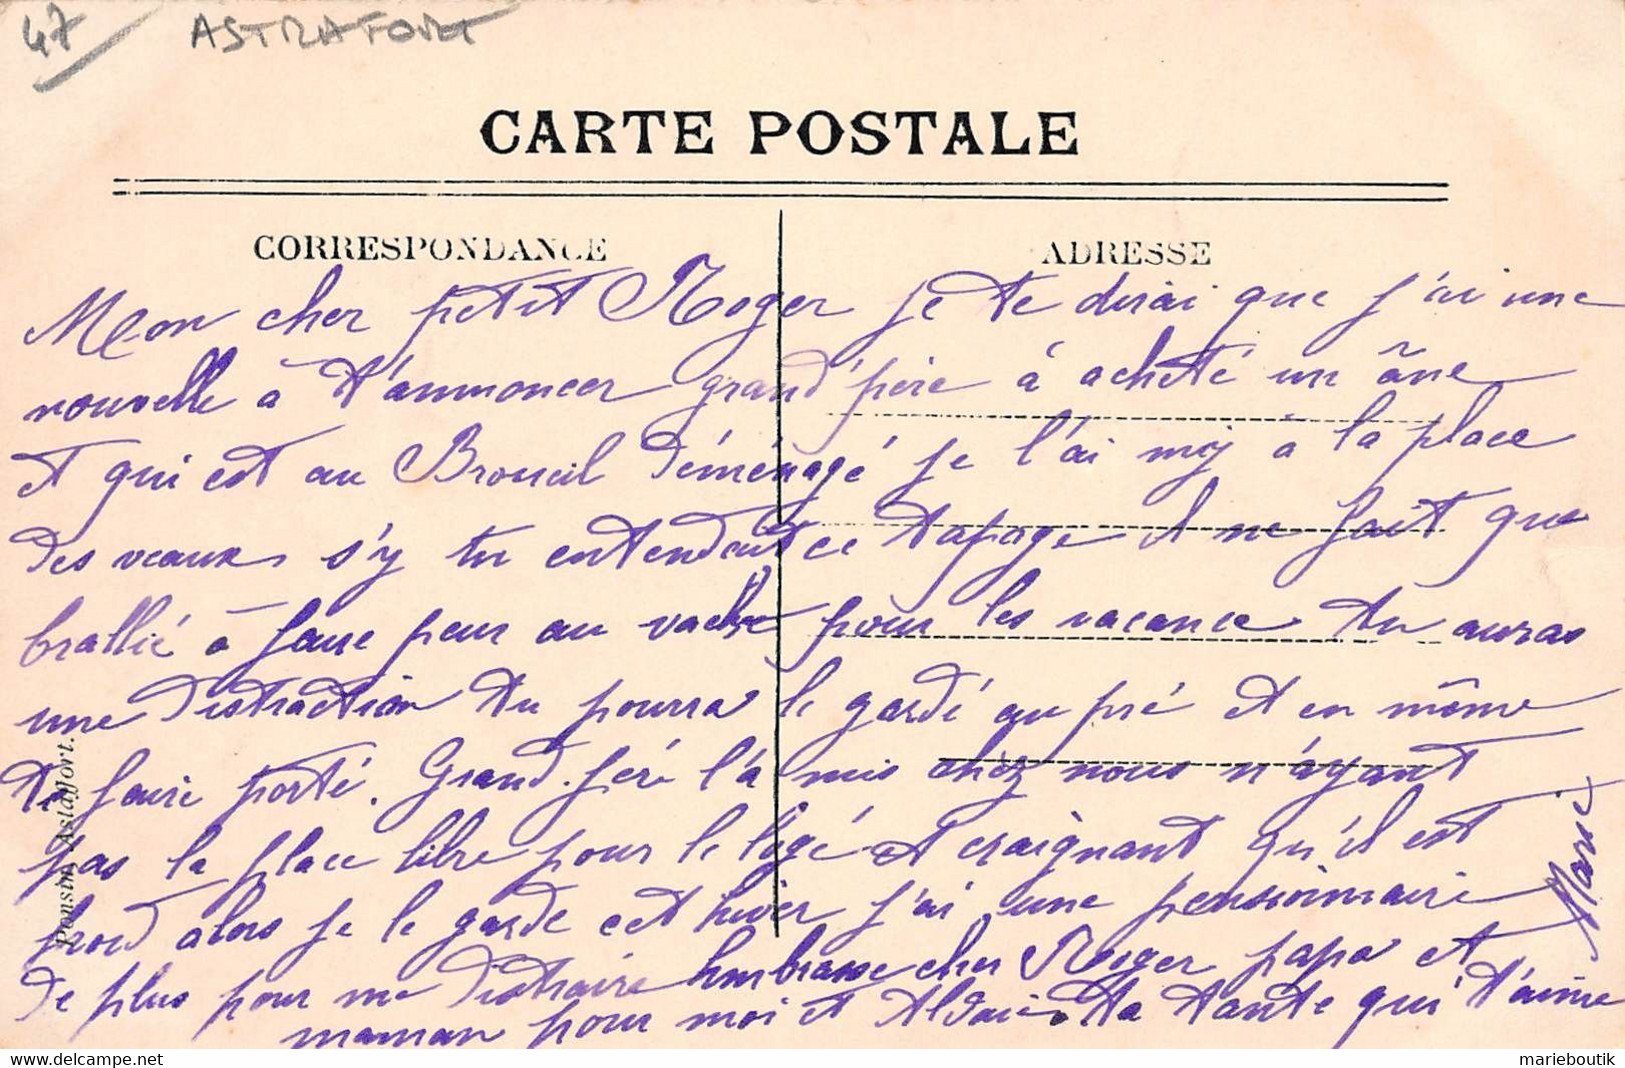 47 ASTRAFORT
CARTE POSTALE
CORRESPONDANCE
ADRESSE
Mon cher petit Roger je te dirai que j'ai une
nouvelle à t'annoncer grand'père à acheté un âne
et qui est au Broueil déménagé je l'ai mi à la place
des veaux s'y tu entendait ce tapage il ne fait que
brallié à faire peur au vache pour les vacance tu auras
une distraction tu pourra le gardé au pré et en même
te faire porté. Grand père l'a mis chez nous n'áyant
pas la place libre pour le logé et craignant qu'il est
froid alors je le garde cet hiver j'ai une pensionnaire
de plus pour me distraire Embrasse cher Roger papa et
maman pour moi et Aldaïe Ta tante qui t'aime
Marie
Ponsin, Astaffort.
Delcampe.net
marieboutik